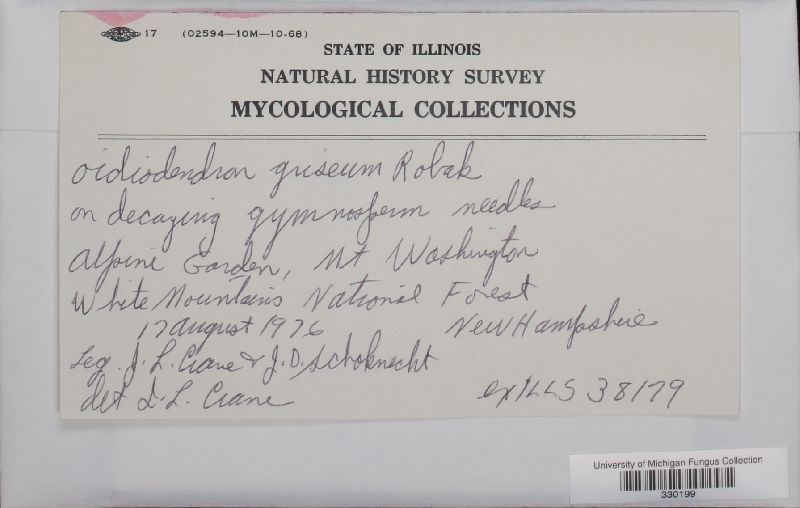 17 (02594—10M—10-68)
STATE OF ILLINOIS
NATURAL HISTORY SURVEY
MYCOLOGICAL COLLECTIONS
Oidiodendron griseum Robak
on decaying gymnosperm needles
Alpine Garden, Mt Washington
White Mountains National Forest
17 August 1976 New Hampshire
Leg. J. L. Crane & J. D. Schoknecht
det J. L. Crane ex ILLS 38179
University of Michigan Fungus Collection
330199